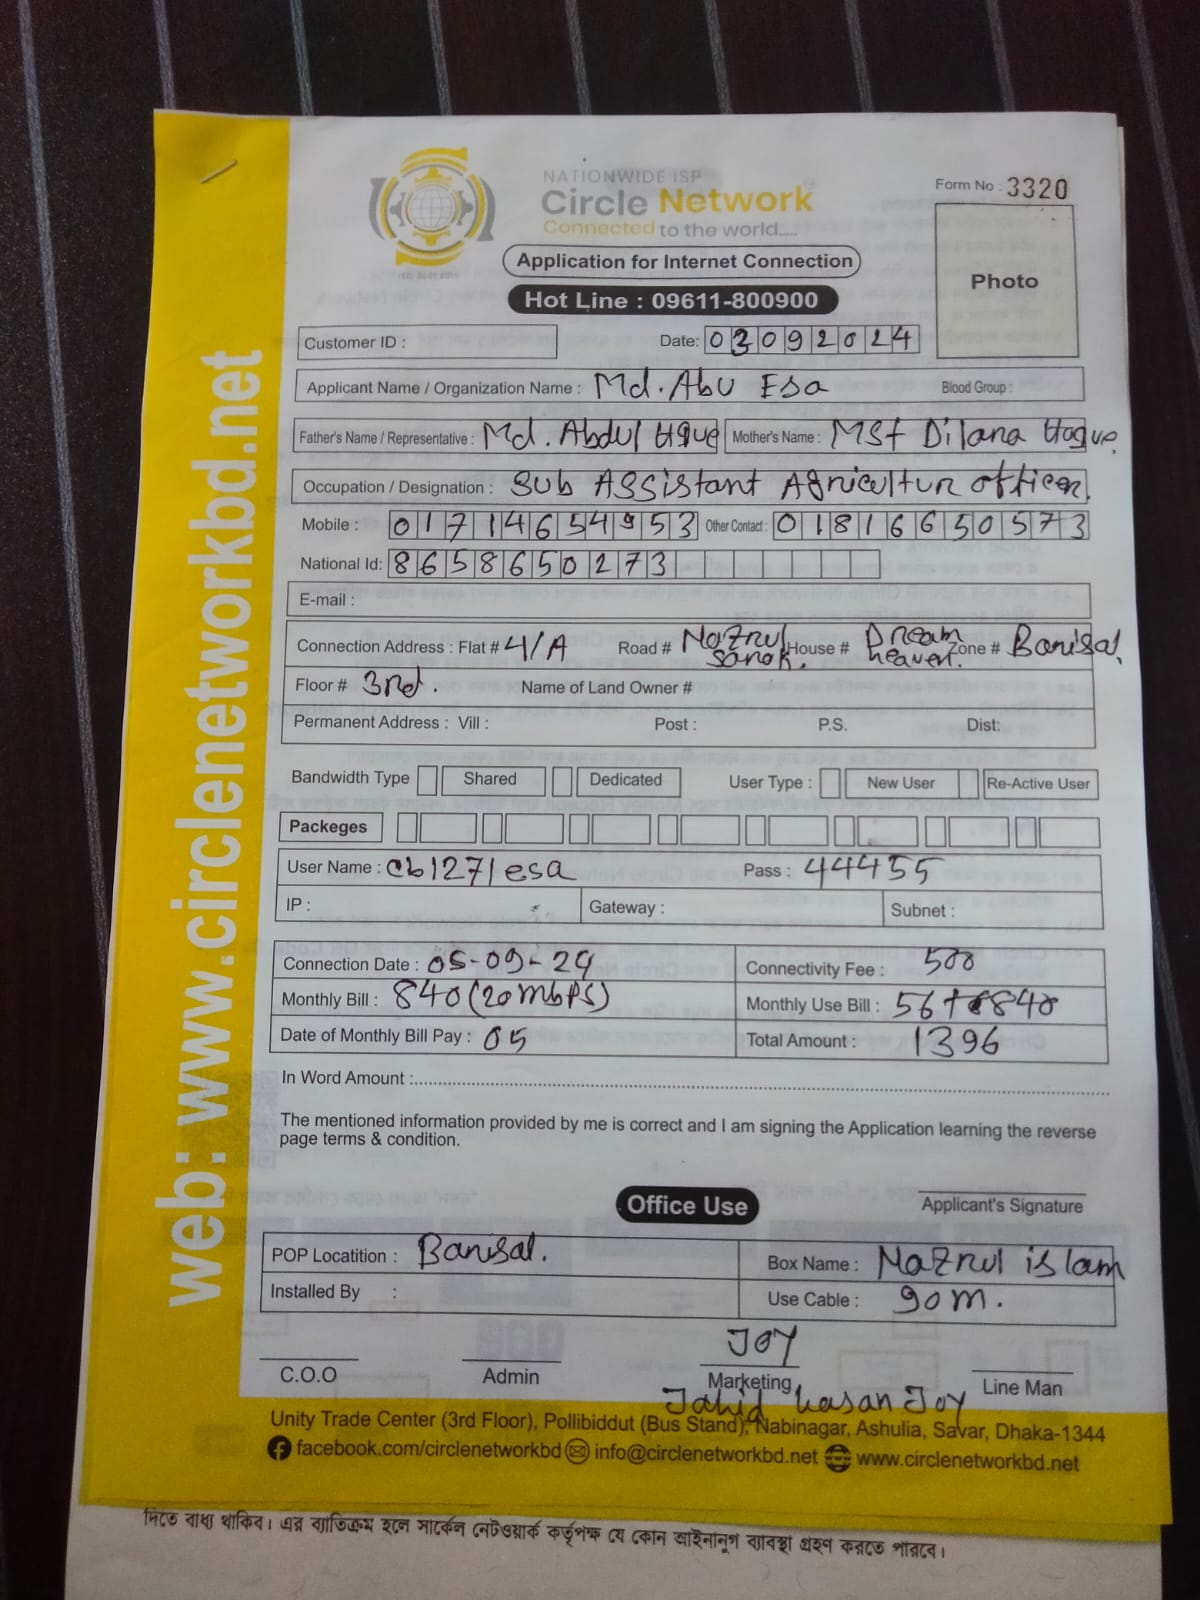 NATIONWIDE ISP
Circle Network
Connected to the world.....
Form No : 3320
Application for Internet Connection
Hot Line : 09611-800900
Photo
Customer ID :
Date: 03092024
Applicant Name / Organization Name : Md. Abu Esa Blood Group :
Father's Name / Representative : Md. Abdul Hque Mother's Name : MSt Dilana Hoque.
Occupation / Designation : Sub Assistant Agricultur officer.
Mobile : 01714654953 Other Contact : 01816650573
National Id: 8658650273
E-mail :
Connection Address : Flat # 4/A Road # Nazrul sarok. House # Dream heaven. Zone # Barisal.
Floor # 3rd. Name of Land Owner #
Permanent Address : Vill : Post : P.S. Dist:
Bandwidth Type Shared Dedicated User Type : New User Re-Active User
Packeges
User Name : cb1271esa Pass : 44455
IP : Gateway : Subnet :
Connection Date : 05-09-24 Connectivity Fee : 500
Monthly Bill : 840(20mbps) Monthly Use Bill : 56+840
Date of Monthly Bill Pay : 05 Total Amount : 1396
In Word Amount :
The mentioned information provided by me is correct and I am signing the Application learning the reverse
page terms & condition.
Office Use
Applicant's Signature
POP Locatition : Barisal. Box Name : Nazrul islam
Installed By : Use Cable : 90m.
JOY
C.O.O Admin Marketing Line Man
Jahid hasan Joy
Unity Trade Center (3rd Floor), Pollibiddut (Bus Stand), Nabinagar, Ashulia, Savar, Dhaka-1344
facebook.com/circlenetworkbd info@circlenetworkbd.net www.circlenetworkbd.net
web: www.circlenetworkbd.net
দিতে বাধ্য থাকিব। এর ব্যতিক্রম হলে সার্কেল নেটওয়ার্ক কর্তৃপক্ষ যে কোন আইনানুগ ব্যবস্থা গ্রহণ করতে পারবে।